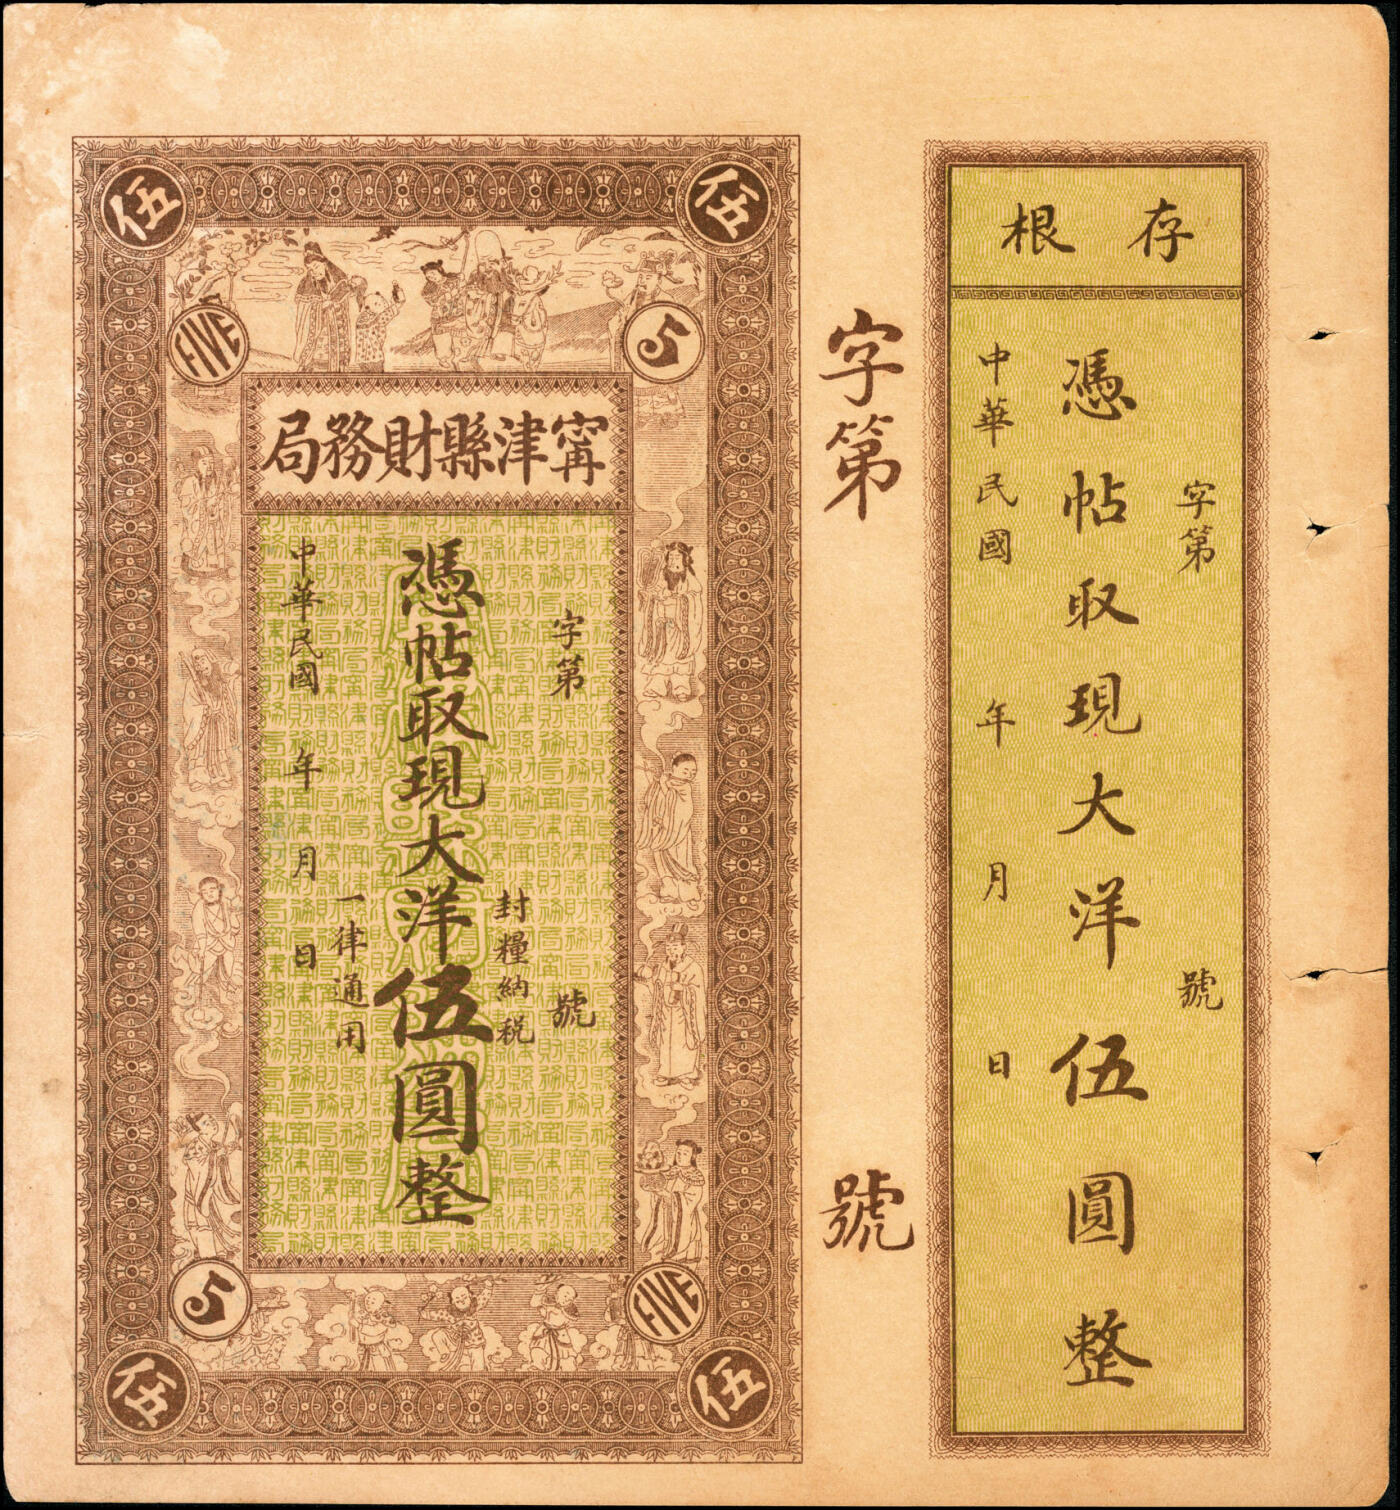 存根
字第 號
憑帖取現大洋伍圓整
中華民國 年 月 日
字第 號
伍
伍
FIVE
5
甯津縣財務局
字第 號
封糧納税
憑帖取現大洋伍圓整
一律通用
中華民國 年 月 日
5
FIVE
伍
伍